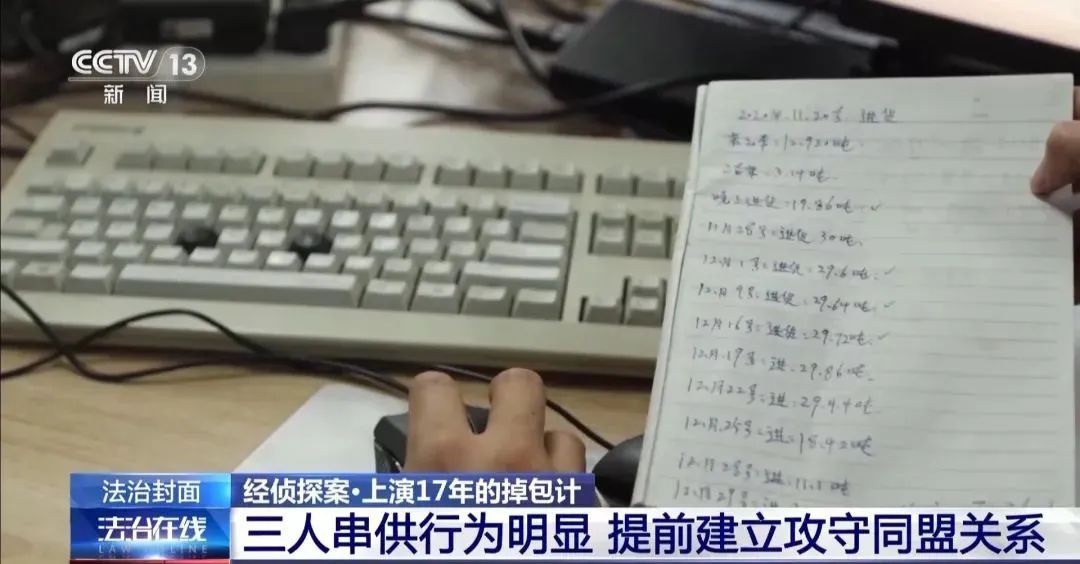 CCTV 13
新闻
2020年.11.20号.进货
12.920吨.
3.14吨.
晚上进货=19.86吨.✓
11月28号=进货30吨.
12月1号=进货=29.6吨.✓
12月9号=进货=29.64吨.✓
12月16号=进货=29.72吨.✓
12月.19号=进.29.86吨.
12月22号=进=29.44吨
12月.25号=进=18.42吨
12月28号=进=11.1吨
12月29号=
法治封面
经侦探案·上演17年的掉包计
法治在线
LAW ONLINE
三人串供行为明显 提前建立攻守同盟关系